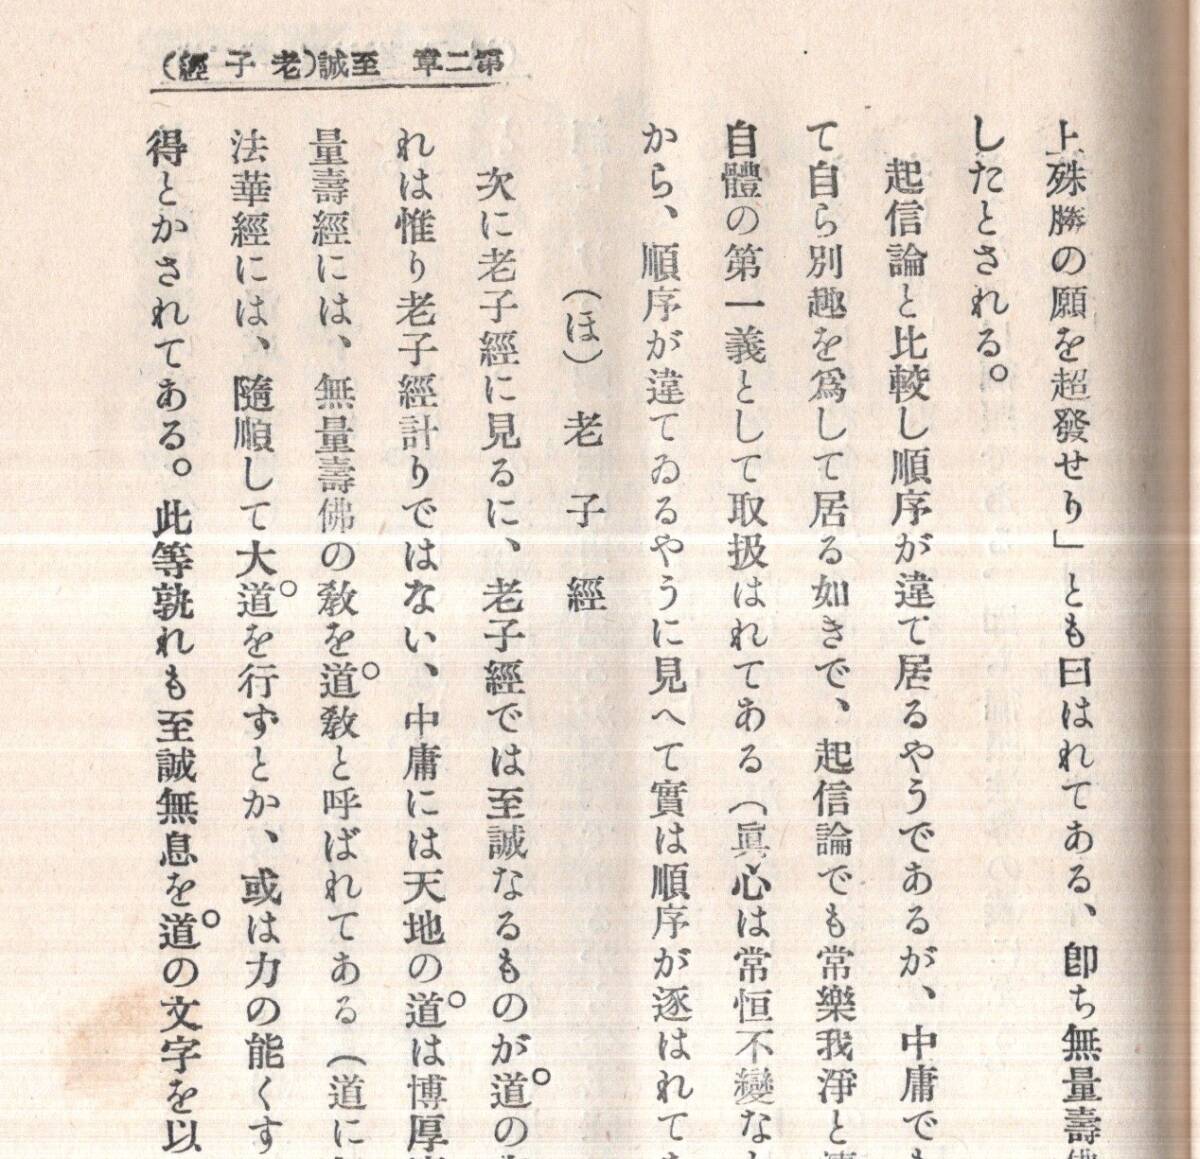 第二章 至誠(老子經)
上殊勝の願を超發せり」とも曰はれてある、卽ち無量壽佛
したとされる。
起信論と比較し順序が違て居るやうであるが、中庸でも
て自ら別趣を爲して居る如きで、起信論でも常樂我淨と
自體の第一義として取扱はれてある(眞心は常恒不變な
から、順序が違てゐるやうに見へて實は順序が逐はれて
(ほ) 老子經
次に老子經に見るに、老子經では至誠なるものが道の
れは惟り老子經計りではない、中庸には天地の道は博厚
量壽經には、無量壽佛の敎を道敎と呼ばれてある(道に
法華經には、隨順して大道を行ずとか、或は力の能くす
得とかされてある。此等孰れも至誠無息を道の文字を以